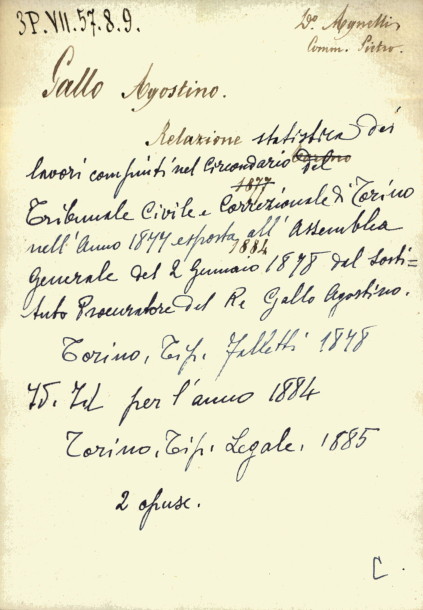 3P.VII.57.8.9.
Do. Agnelli
Comm. Pietro.
Gallo Agostino.
Relazione statistica dei
lavori compiuti nel Circondario del
1877
Tribunale Civile e Correzionale di Torino
nell'Anno 1877 esposta all'Assemblea
1884
Generale del 2 Gennaio 1878 dal Sosti=
tuto Procuratore del Re Gallo Agostino.
Torino, Tip. Falletti 1878
Id. Id per l'anno 1884
Torino, Tip. Legale. 1885
2 opusc.
C.